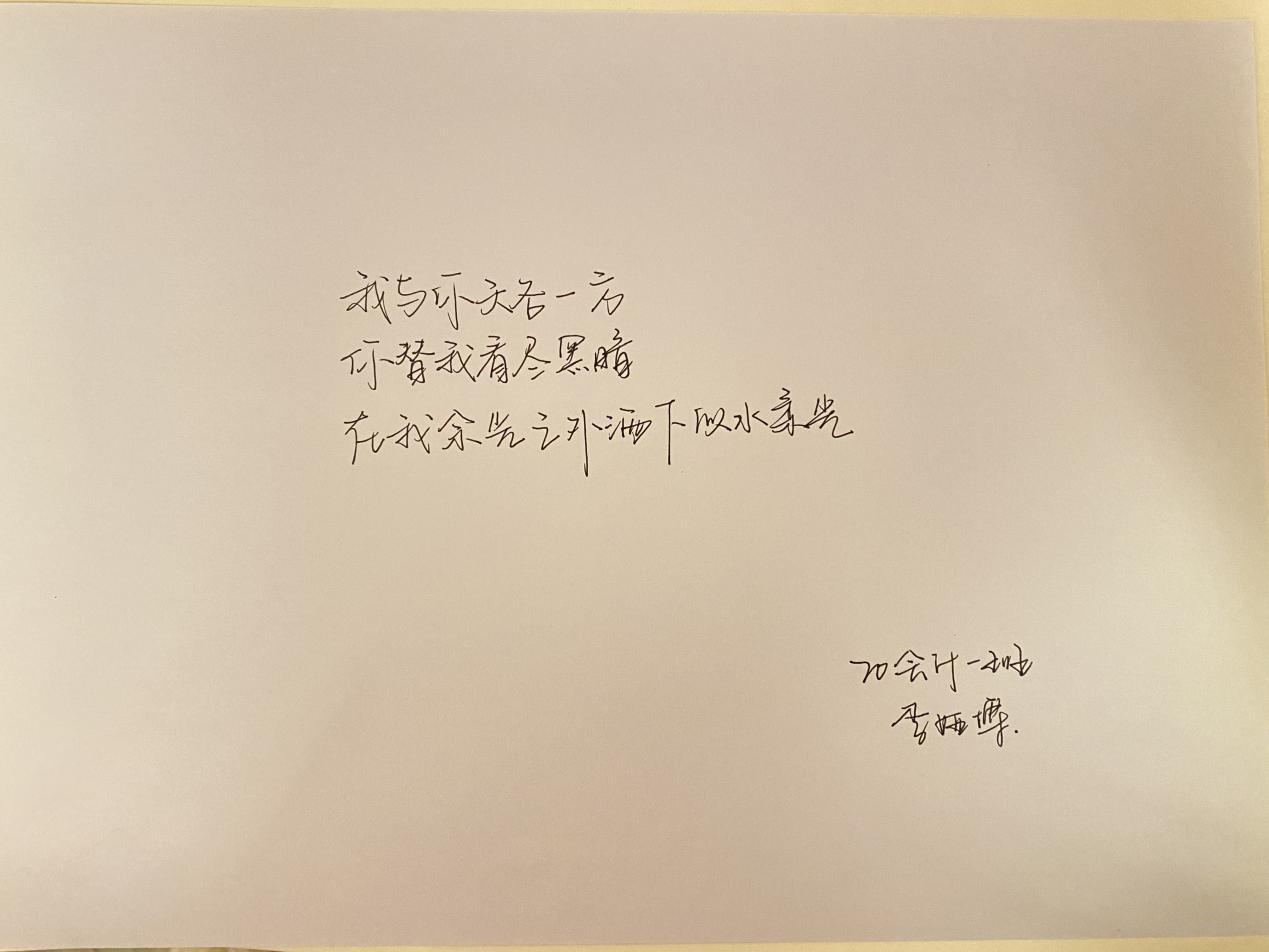 我与你天各一方
你替我看尽黑暗
在我余光之外洒下似水柔光
20会计一班
李